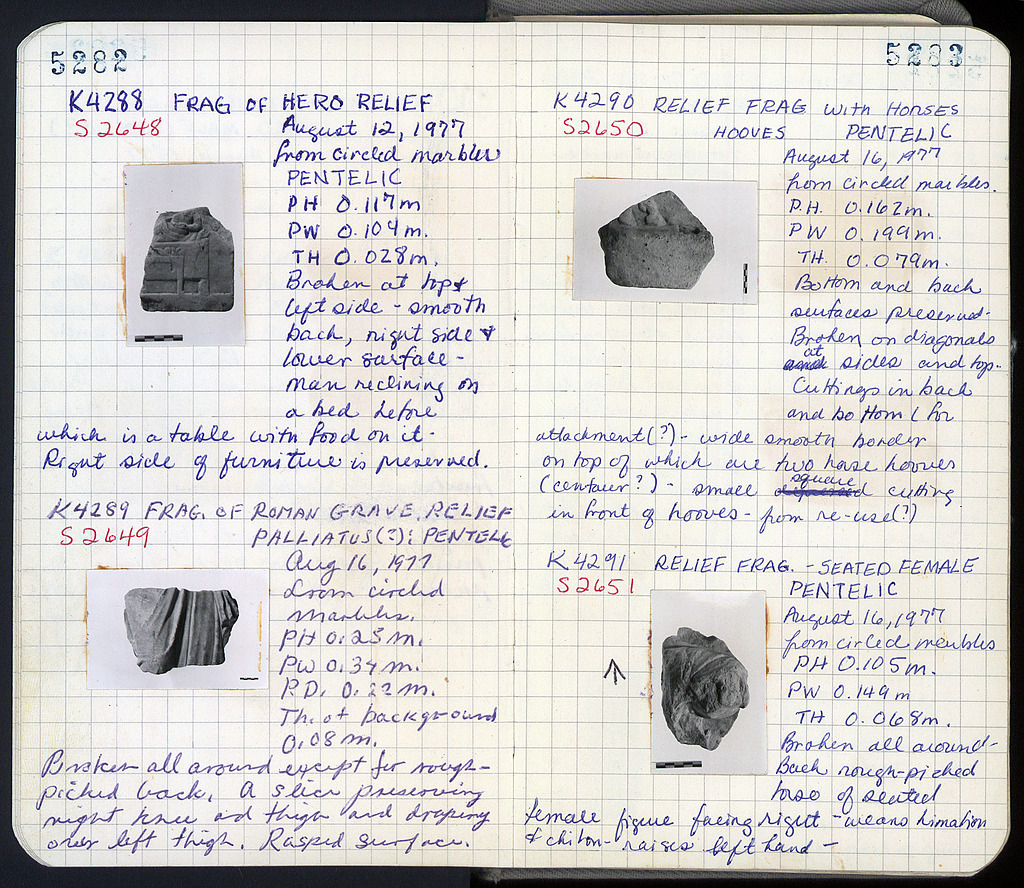 5282
K4288 FRAG OF HERO RELIEF
S2648
August 12, 1977
from circled marbles
PENTELIC
PH 0.117m
PW 0.104m.
TH 0.028m.
Broken at top &
left side - smooth
back, right side &
lower surface -
man reclining on
a bed before
which is a table with food on it -
Right side of furniture is preserved.
K4289 FRAG. OF ROMAN GRAVE RELIEF
S2649 PALLIATUS(?): PENTELIC
Aug 16, 1977
From circled
marbles.
PH 0.23 m.
PW 0.34 m.
P.D. 0.22 m.
Th. of background
0.08 m.
Broken all around except for rough-
picked back. A slice preserving
right knee and thigh and draping
over left thigh. Rasped surface.
5283
K4290 RELIEF FRAG with HORSES
S2650 HOOVES PENTELIC
August 16, 1977
from circled marbles.
P.H. 0.162m.
PW 0.199m.
TH. 0.079m.
Bottom and back
surfaces preserved -
Broken on diagonals
at sides and top -
Cuttings in back
and bottom (for
attachment(?) - wide smooth border
on top of which are two horse hooves
(centaur?) - small square cutting
in front of hooves - from re-use(?)
K4291 RELIEF FRAG. - SEATED FEMALE
S2651 PENTELIC
August 16, 1977
from circled marbles
PH 0.105m.
PW 0.149m
TH 0.068m.
Broken all around -
Back rough-picked
torso of seated
female figure facing right - wears himation
& chiton - raises left hand -